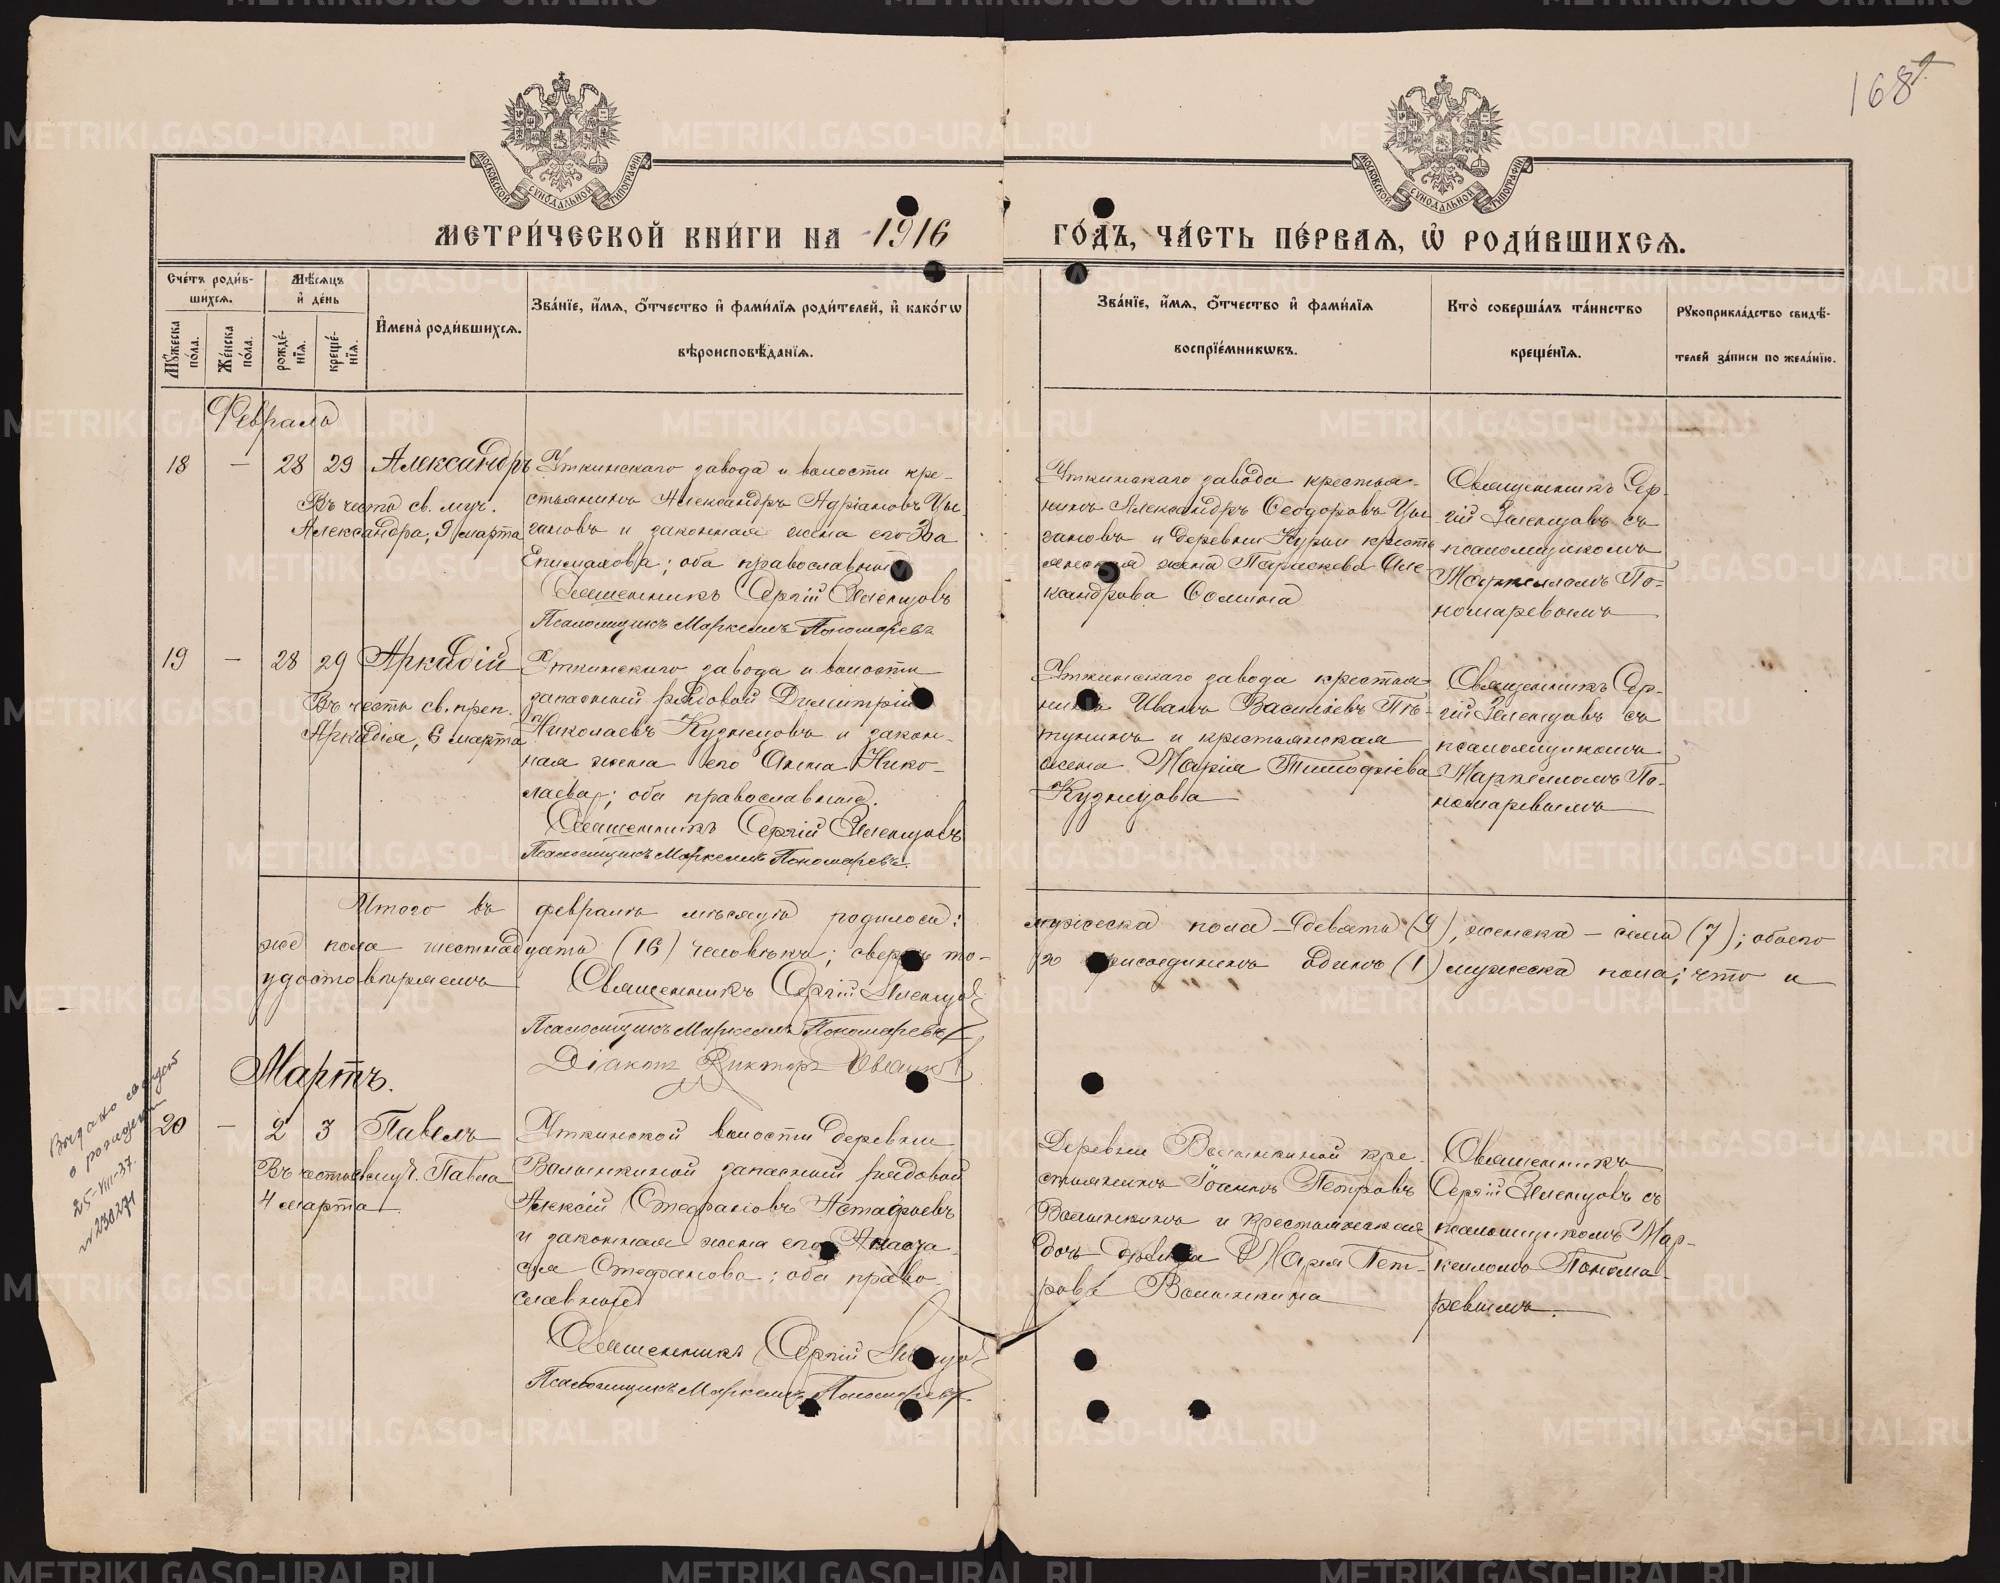 168
МОСКОВСКОЙ СѴНОДАЛЬНОЙ ТИПОГРАФІИ
МОСКОВСКОЙ СѴНОДАЛЬНОЙ ТИПОГРАФІИ
МЕТРИ́ЧЕСКОЙ КНИ́ГИ НА 1916
ГО́ДЪ, ЧА́СТЬ ПЕ́РВАЯ, Ѽ РОДИ́ВШИХСЯ.
Сче́тъ роди́в-
шихся.
Мꙋ́жеска по́ла.
Же́нска по́ла.
Мѣ́сяцъ
и҆ де́нь
рожде́-
нїѧ.
креще́-
нїѧ.
И҆мена̀ роди́вшихся.
Зва́нїе, и҆́мя, ѻ҆́тчество и҆ фами́лїя роди́телей, и҆ како́гѡ
вѣроисповѣ́данїя.
Зва́нїе, и҆́мя, ѻ҆́тчество и҆ фами́лїя
воспрїе́мникѡвъ.
Кто̀ соверша́лъ та́инство
креще́нїя.
Рꙋкоприкла́дство свидѣ́-
телей за́писи по жела́нїю.
Февраль
18 — 28 29 Александръ
Въ честь св. муч.
Александра, 9 марта
Уткинскаго завода и волости кре-
стьянинъ Александръ Адріановъ Цы-
гановъ и законная жена его Зоа
Епимахова; оба православные
Священникъ Сергій
Псаломщикъ Маркеллъ Пономаревъ
Уткинскаго завода крестья-
нинъ Александръ Ѳеодоровъ Цы-
гановъ и деревни Курьи кресть
янская жена Параскева Але
ксандрова Сомина
Священникъ Сер-
гій съ
псаломщикомъ
Маркелломъ По-
номаревымъ
19 — 28 29 Аркадій
Въ честь св. преп.
Аркадія, 6 марта
Уткинскаго завода и волости
запасный рядовой Димитрій
Николаевъ Кузнецовъ и закон-
ная жена его Анна Нико-
лаева; оба православные.
Священникъ Сергій
Псаломщикъ Маркеллъ Пономаревъ.
Уткинскаго завода крестья-
нинъ Иванъ Васильевъ Пѣ-
тунинъ и крестьянская
жена Марія Тимофіева
Кузнецова
Священникъ Сер-
гій съ
псаломщикомъ
Маркелломъ По-
номаревымъ
Итого въ февралѣ мѣсяцѣ родилось: мужеска пола — девять (9), женска — семь (7); обоего
же пола шестнадцать (16) человѣкъ; сверхъ то- го присоединенъ одинъ (1) мужеска пола; что и
удостовѣряемъ
Священникъ Сергій
Псаломщикъ Маркеллъ Пономаревъ
Діаконъ Викторъ
Мартъ.
Выдано свидет
о рождении
25-VIII-37.
№230271
20 — 2 3 Павелъ
Въ честь св. муч. Павла
4 марта
Уткинской волости деревни
Волынкиной запасный рядовой
Алексій Стефановъ Астафьевъ
и законная жена его Анаста
сія Стефанова; оба право-
славные
Священникъ Сергій
Псаломщикъ Маркеллъ Пономаревъ.
Деревни Волынкиной кре-
стьянинъ Іоаннъ Петровъ
Волынкинъ и крестьянская
дочь дѣвица Марія Пет-
рова Волынкина
Священникъ
Сергій съ
псаломщикомъ Мар-
келломъ Понома-
ревымъ.
METRIKI.GASO-URAL.RU